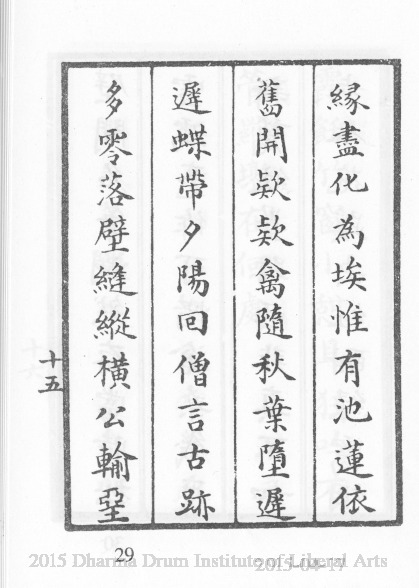 緣盡化為埃惟有池蓮依
舊開欵欵禽隨秋葉墮遲
遲蝶帶夕陽回僧言古跡
多零落壁縫縱橫公輸堊
十五
29
2015 Dharma Drum Institute of Liberal Arts
2015-04-17